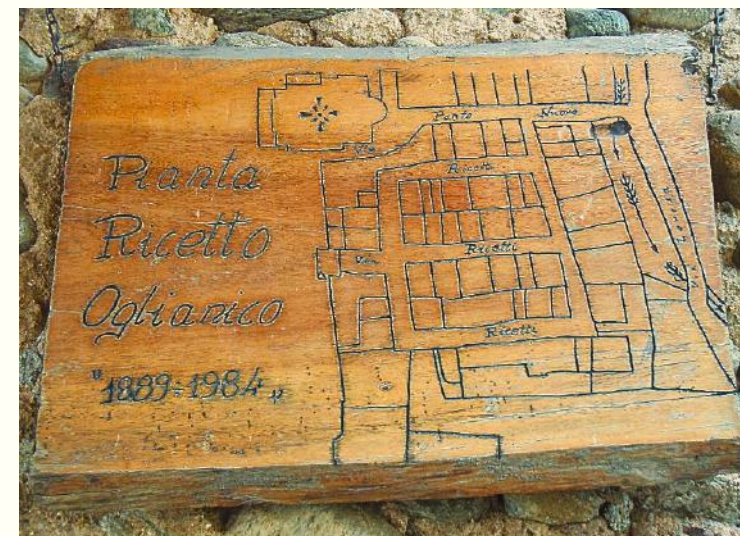 Pianta
Ricetto
Oglianico
"1889=1984"
Via
Ponte Nuovo
Ricetti
Ricetti
Via
Ricetti
Via